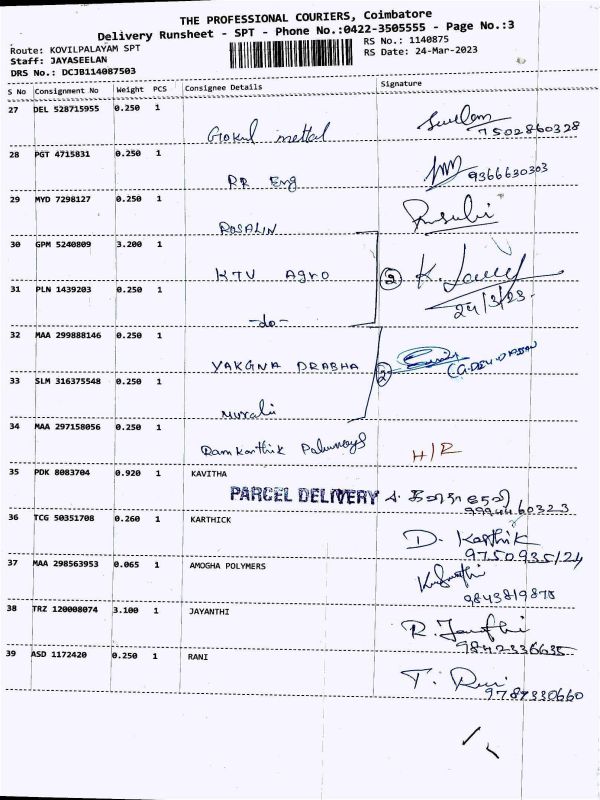 THE PROFESSIONAL COURIERS, Coimbatore
Delivery Runsheet - SPT - Phone No.:0422-3505555 - Page No.:3
Route: KOVILPALAYAM SPT
Staff: JAYASEELAN
DRS No.: DCJB114087503
RS No.: 1140875
RS Date: 24-Mar-2023
S No Consignment No Weight PCS Consignee Details Signature
27 DEL 528715955 0.250 1
Gokul mettal 7502860328
28 PGT 4715831 0.250 1
RR Eng 9366630303
29 MYD 7298127 0.250 1
ROSALIN
30 GPM 5240809 3.200 1
KTV Agro 2 K.
31 PLN 1439203 0.250 1
24/3/23.
-do-
32 MAA 299888146 0.250 1
YAKGNA PRABHA 2
33 SLM 316375548 0.250 1
Murali
34 MAA 297158056 0.250 1
Ramkarthik H/R
35 PDK 8083704 0.920 1 KAVITHA
PARCEL DELIVERY
9994460323
36 TCG 50351708 0.260 1 KARTHICK
D. Karthik
9750935124
37 MAA 298563953 0.065 1 AMOGHA POLYMERS
9843819878
38 TRZ 120008074 3.100 1 JAYANTHI
R. Jayanthi
9842336635
39 ASD 1172420 0.250 1 RANI
T. Rani
9787330660